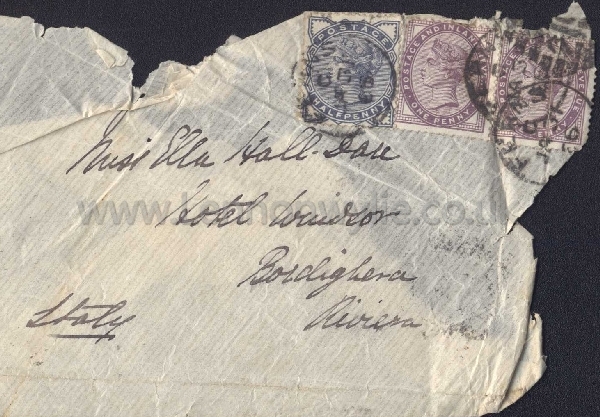 POSTAGE
HALFPENNY
POSTAGE AND INLAND
ONE PENNY
Miss Ella Hall-Dare
Hotel Windsor
Bordighera
Riviera
Italy